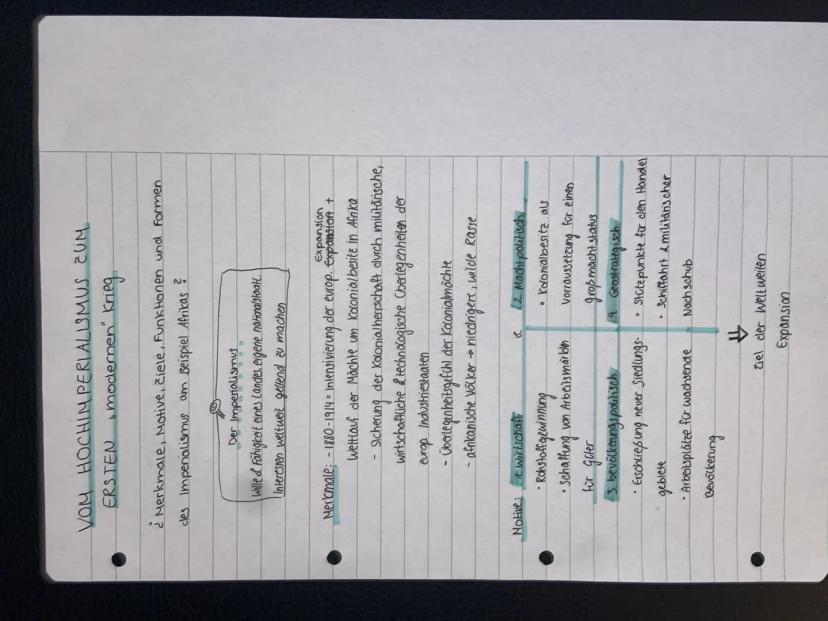 VOM HOCHIMPERIALISMUS ZUM
ERSTEN „modernen" Krieg
¿ Merkmale, Motive, Ziele, Funktionen und Formen
des Imperialismus am Beispiel Afrikas ?
Der Imperialismus
Wille & Fähigkeit eines Landes, eigene nationalstaatl.
Interessen weltweit geltend zu machen
Expansion
Merkmale: - 1880-1914 = Intensivierung der europ. +
Wettlauf der Mächte um Kolonialbesitz in Afrika
- Sicherung der Kolonialherrschaft durch militärische,
wirtschaftliche & technologische Überlegenheiten der
europ. Industriestaaten
- Überlegenheitsgefühl der Kolonialmächte
- afrikanische Völker → niedrigere, wilde Rasse
Motive: 1. wirtschaft
• Rohstoffgewinnung
• Schaffung von Arbeitsmärkten
für Güter
2. Machtpolitisch
• Kolonialbesitz als
Vorraussetzung für einen
großmachtstatus
3. bevölkerungspolitisch
• Erschließung neuer Siedlungs-
gebiete
• Arbeitsplätze für wachsende
Bevölkerung
4. Geostrategisch
• Stützpunkte für den Handel
• Schiffahrt & militärischer
Nachschub
⇓
Ziel der weltweiten
Expansion